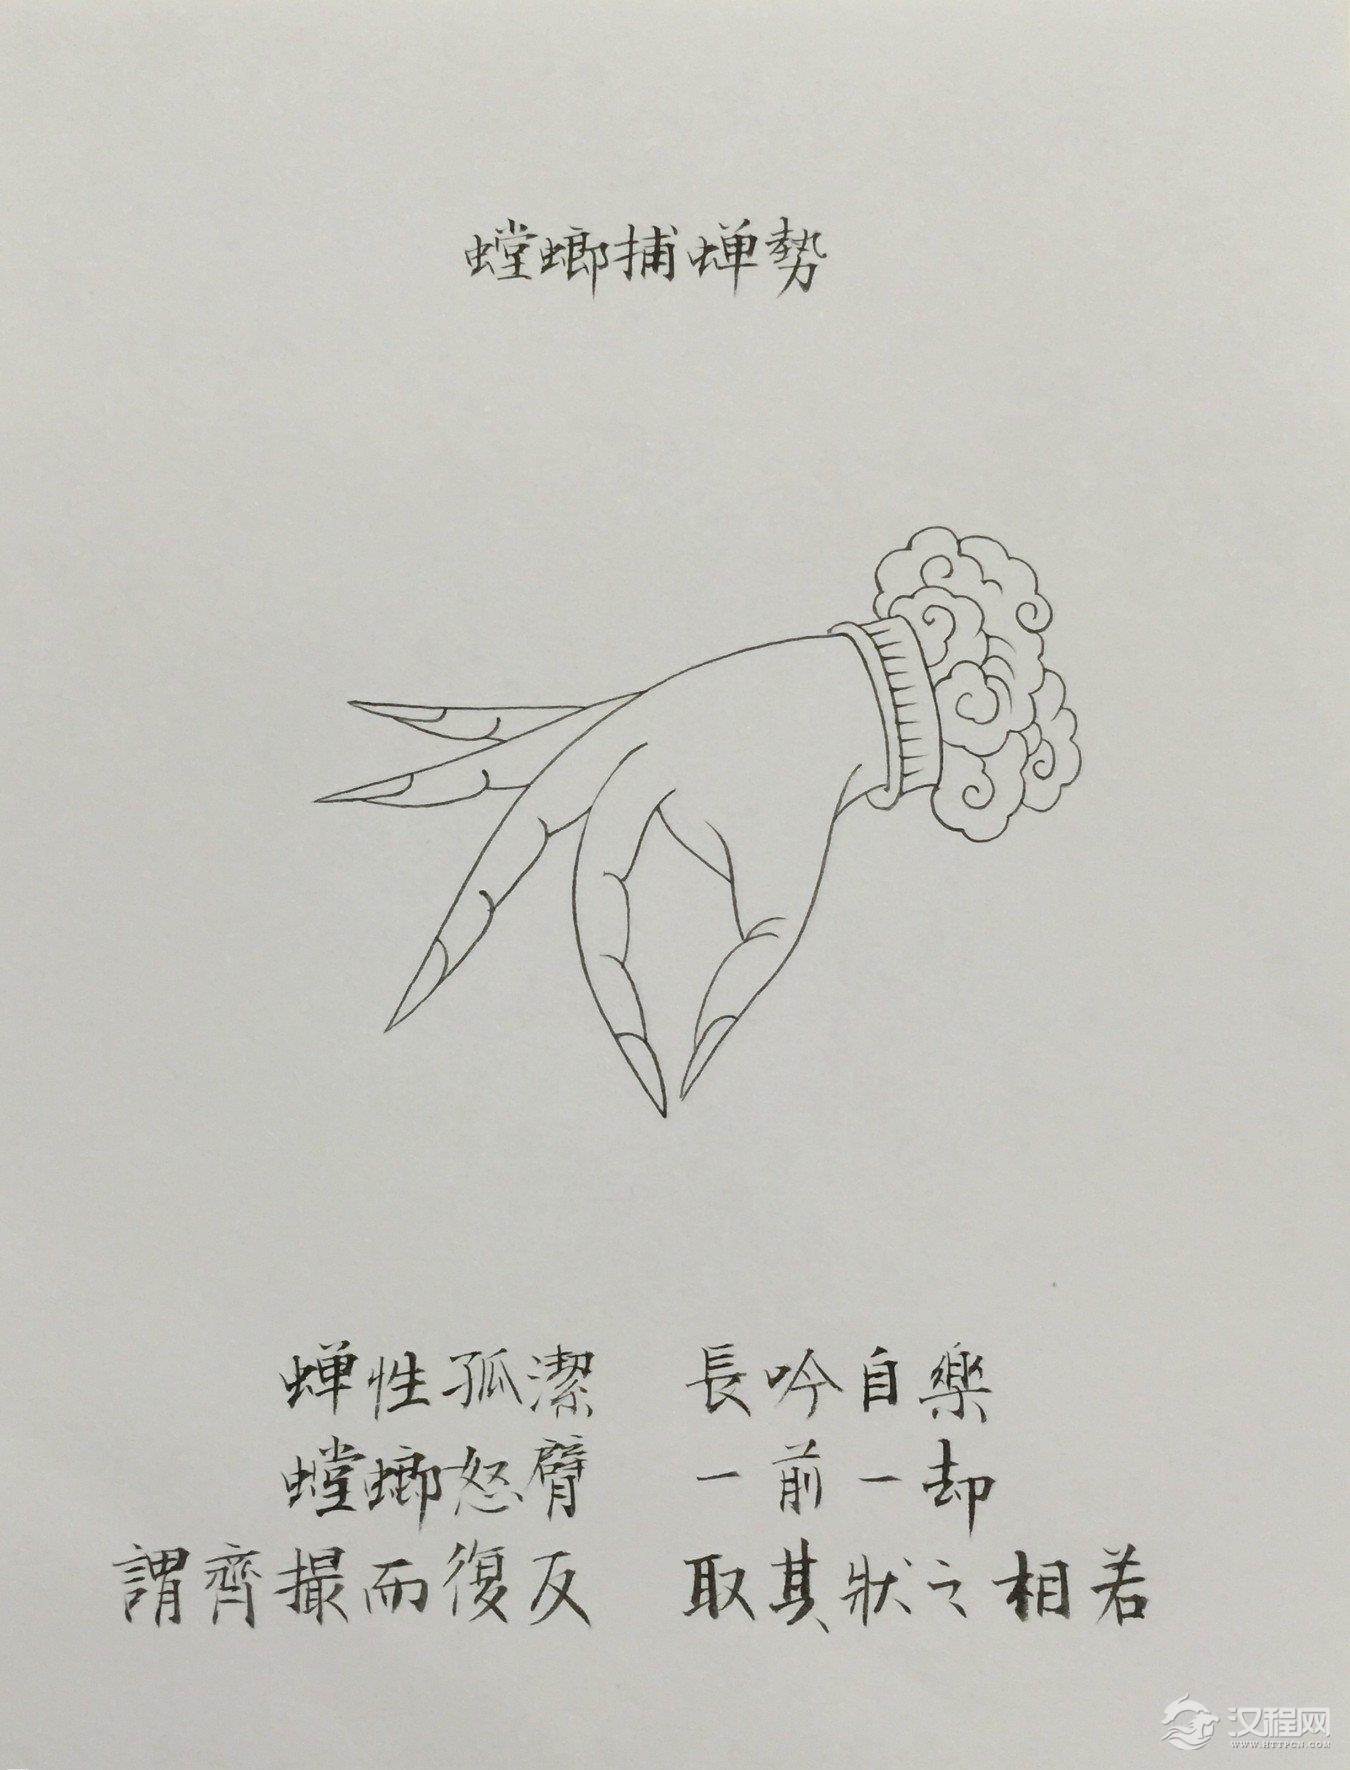 螳螂捕蝉勢
蝉性孤潔　長吟自樂
螳螂怒臂　一前一却
謂齊撮而復反　取其狀之相若
汉程网
WWW.HTTPCN.COM